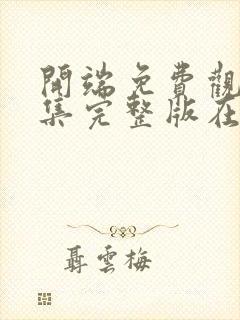 開端免費觀
集完整版在
聶雲梅